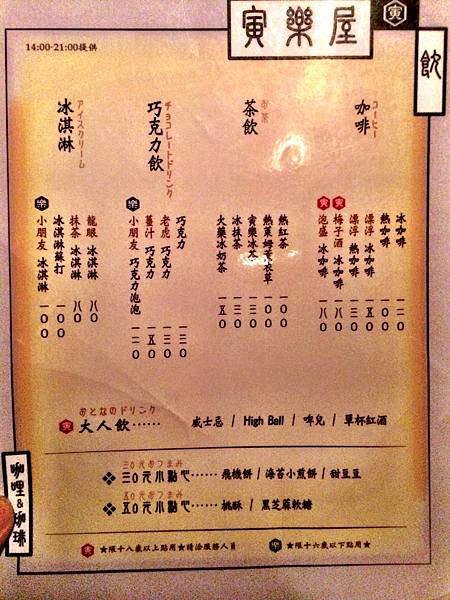 寅樂屋
寅
飲
14:00-21:00提供
コーヒー
咖啡
冰咖啡 一二〇
熱咖啡 一〇〇
漂浮 冰咖啡 一五〇
漂浮 熱咖啡 一三〇
寅 梅子酒 冰咖啡 一八〇
寅 泡盛 冰咖啡 一八〇
お茶
茶飲
熱紅茶 一〇〇
熱萊姆薰衣草 一〇〇
寅樂冰茶
冰抹茶 一三〇
火藥冰奶茶 一五〇
チョコレートドリンク
巧克力飲
巧克力 一三〇
老虎 巧克力 一三〇
薑汁 巧克力 一五〇
樂 小朋友 巧克力泡泡 一二〇
アイスクリーム
冰淇淋
龍眼 冰淇淋 八〇
抹茶 冰淇淋 八〇
冰淇淋蘇打 一〇〇
樂 小朋友 冰淇淋 一〇〇
おとなのドリンク
寅 大人飲…… 威士忌 / High Ball / 啤兒 / 單杯紅酒
三〇元おつまみ
三〇元小點心…… 飛機餅 / 海苔小煎餅 / 甜豆豆
五〇元おつまみ
五〇元小點心…… 桃酥 / 黑芝蔴軟糖
咖哩&珈琲
寅 ★限十八歲以上點用★請洽服務人員
樂 ★限十六歲以下點用★